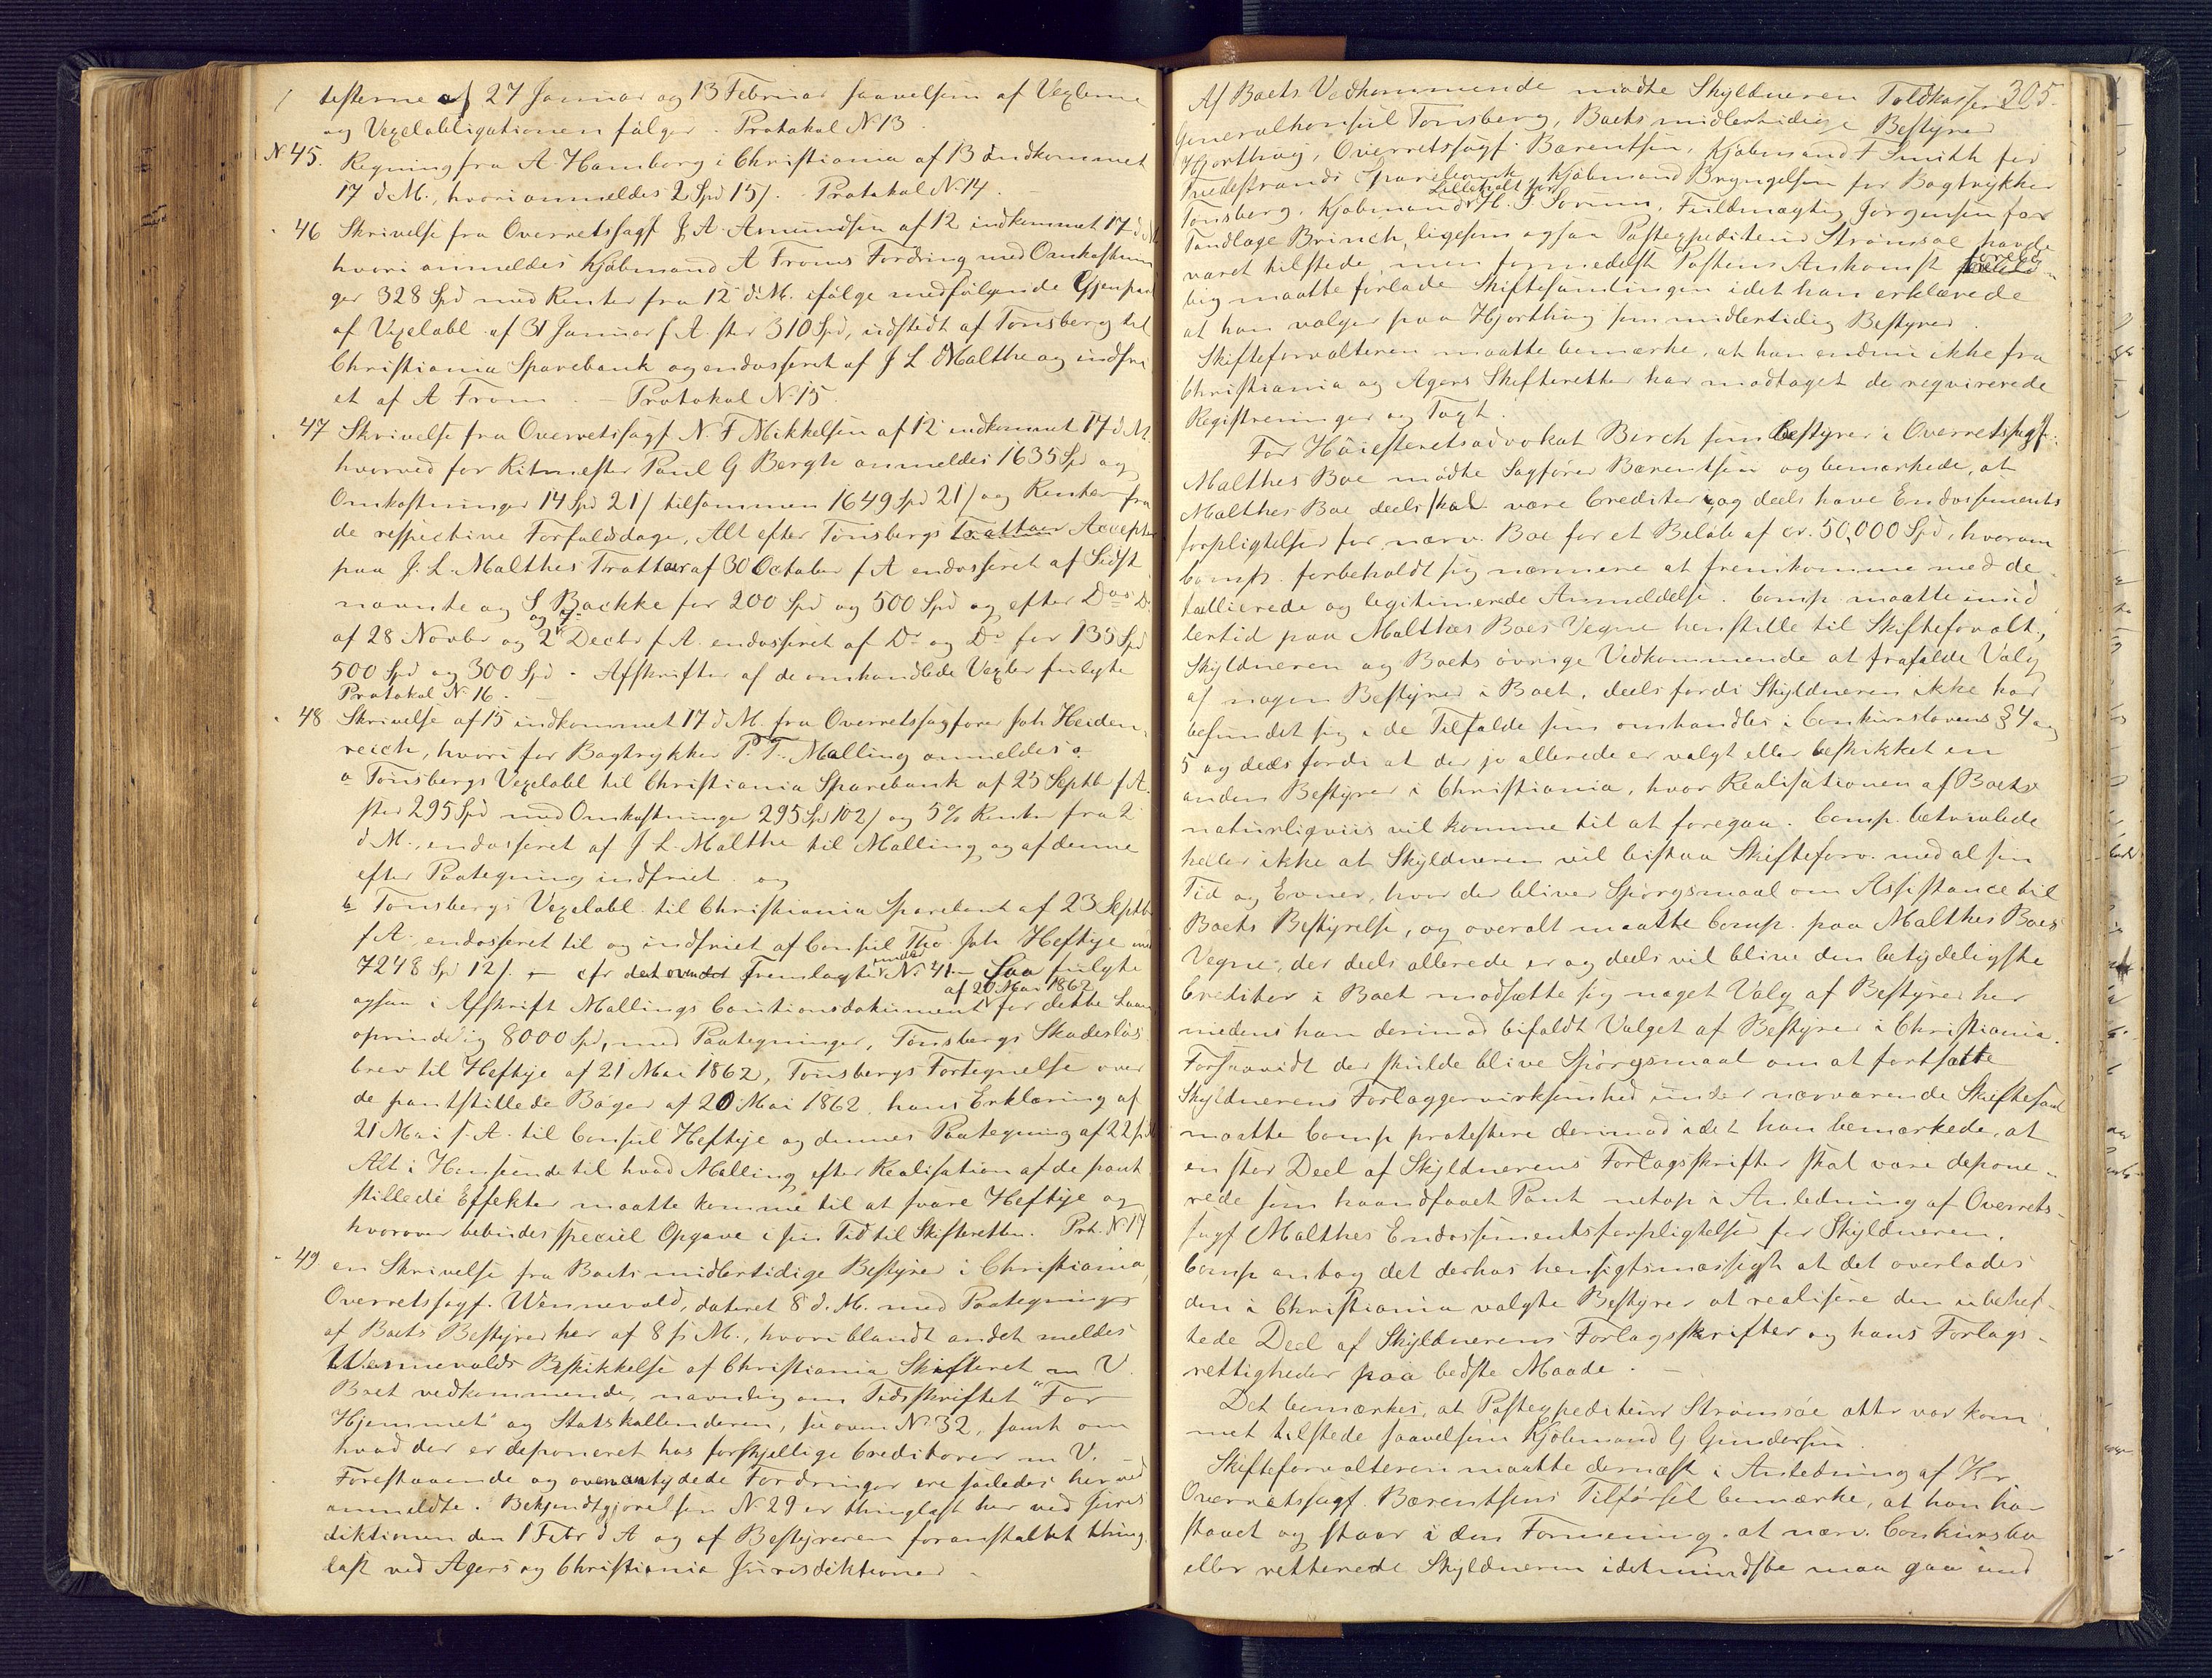 testerne af 27 Januar og 13 Februar saavelsom af Vexlerne
og Vexelobligationen følger. Protokol No 13
No 45. Regning fra A. Hamborg i Christiania af 13 indkommet
17 d M., hvori anmeldes 2 Spd 15 /. - Protokol No 14. -
46 Skrivelse fra Overretssagf J. A. Amundsen af 12 indkommet 17 d
hvori anmeldes Kjøbmand A Froms Fordring med Omkostnin
ger 328 Spd med Renter fra 12 d M. ifølge medfølgende Gjenpart
af Vexelobl. af 31 Januar f A. stor 310 Spd, udstedt af Tønsberg til
Christiania Sparebank og endosseret af J L Malthe og indfri
et af A From. - Protokol No 15.
47 Skrivelse fra Overretssagf N. F Mikkelsen af 12 indkommet 17 d M.
hvorved for Ritmester Paul G Bergh anmeldes 1635 Spd og
Omkostninger 14 Spd 21 / tilsammen 1649 Spd 21 / og Renter fra
de respective Forfaldsdage, Alt efter Tønsbergs Trattaer Accepter
paa J. L. Malthes Trattaer af 30 October f A endosseret af Sidst
nævnte og S Backke for 200 Spd og 500 Spd og efter Dos Do
af 28 Novbr og 2 og 7 Decbr f A. endosseret af Do og Do for 135 Spd
500 Spd og 300 Spd. Afskrifter af de omhandlede Vexler fulgte
Protokol No 16. -
48 Skrivelse af 15 indkommet 17 d M. fra Overretssagfører Joh Heiden
reich, hvori for Bogtrykker P. T. Malling anmeldes:
a Tønsbergs Vexelobl til Christiania Sparebank af 23 Septb f A.
stor 295 Spd med Omkostninger 295 Spd 102 / og 5% Renter fra 2
d M., endosseret af J L. Malthe til Malling og af denne
efter Paategning indfriet. og
b Tønsbergs Vexelobl. til Christiania Sparebank af 23 Septbr
f A., endosseret til og indfriet af Consul Tho. Joh Heftye med
7248 Spd 12 /. - cfr det ovenfor fremlagte under No 41. - Saa fulgte
ogsaa i Afskrift Mallings Cautionsdokument af 20 Mai 1862 for dette Laan
oprindelig 8000 Spd, med Paategninger, Tønsbergs Skadesløs
brev til Heftye af 21 Mai 1862, Tønsbergs Fortegnelse over
de pantstillede Bøger af 20 Mai 1862, hans Erklæring af
21 Mai s. A. til Consul Heftye og dennes Paategning af 22 s
Alt i Henseende til hvad Malling efter Realisation af de pant
stillede Effekter maatte komme til at svare Heftye og
hvorover bebudes speciel Opgave i sin Tid til Skifteretten. Prt. No 17
49 en Skrivelse fra Boets midlertidige Bestyrer i Christiania,
Overretssagf. Wennevold, dateret 8 d. M. med Paategninger
af Boets Bestyrer her af 8 s M., hvori blandt andet meldes
Wennevolds Beskikkelse af Christiania Skifteret m V.
Boet vedkommende, navnlig om Tidsskriftet "For
Hjemmet" og Statskallenderen, see oven No 32, samt om
hvad der er deponeret hos forskjellige Creditorer m V. -
Forestaaende og ovenantydede Fordringer ere saaledes herved
anmeldte. Bekjendtgjørelsen No 29 er thinglæst her ved Juris
diktionen den 1 Febr d A og af Bestyreren foranstaltet thing
læst ved Agers og Christiania Jurisdiktioner -
305.
Af Boets Vedkommende mødte Skyldneren Toldkasserer
Generalkonsul Tønsberg, Boets midlertidige Bestyrer
Hjorthøy, Overretssagf. Barentsen, Kjøbmand F Smith for
Tvedestrands Sparebank, Kjøbmand Bryngelsen for Bogtrykker
Tønsberg, Kjøbmand Lilleholt for H. J Sørum, Fuldmægtig Jørgensen for
Tandlæge Brinch, ligesom ogsaa Postexpediteur Strømsøe havde
været tilstede, men formedelst Postens Ankomst foreløb
ig maatte forlade Skiftesamlingen idet han erklærede
at han valgte paa Hjorthøy som midlertidig Bestyrer.
Skifteforvalteren maatte bemærke, at han endnu ikke fra
Christiania og Agers Skifteretter har modtaget de reqvirerede
Registreringer og Taxt.
For Høiesteretsadvokat Berch som Bestyrer i Overretssagf.
Malthes Boe mødte Sagfører Barentsen og bemærkede, at
Malthes Boe deels skal være Creditor og deels have Endossements
forpligtelser for nærv. Boe for et Beløb af cr. 50,000 Spd, hvorom
Comp. forbeholdt sig nærmere at fremkomme med de
taillerede og legitimerede Anmeldelse. Comp. maatte imid
lertid paa Malthes Boes Vegne henstille til Skifteforvalt.,
Skyldneren og Boets øvrige Vedkommende at frafalde Valg
af nogen Bestyrer i Boet, deels fordi Skyldneren ikke har
befundet sig i de Tilfælde som omhandles i Conkurslovens § 4 og
5 og deels fordi at der jo allerede er valgt eller beskikket en
anden Bestyrer i Christiania, hvor Realisationen af Boets
naturligviis vil komme til at foregaa. Comp. betvivlede
heller ikke at Skyldneren vil bistaa Skifteforv. med al sin
Tid og Evner, hvor der bliver Spørgsmaal om Assistance til
Boets Bestyrelse, og overalt maatte Comp. paa Malthes Boes
Vegne, der deels allerede er og deels vil blive den betydeligste
Creditor i Boet modsætte sig noget Valg af Bestyrer her
medens han derimod bifaldt Valget af Bestyrer i Christiania.
Forsaavidt der skulde blive Spørgsmaal om at fortsætte
Skyldnerens Forlæggervirksomhed under nærværende Skiftesaml
maatte Comp protestere derimod idet han bemærkede, at
en stor Deel af Skyldnerens Forlagsskrifter skal være depone-
rede som haandfaaet Pant netop i Anledning af Overrets-
sagf Malthes Endossementsforpligtelser for Skyldneren.
Comp antog det derhos hensigtsmæssigst at det overlades
den i Christiania valgte Bestyrer at realisere den ubehef-
tede Deel af Skyldnerens Forlagsskrifter og hans Forlags-
rettigheder paa bedste Maade. -
Det bemærkes, at Postexpediteur Strømsøe atter var kom
met tilstede saavelsom Kjøbmand G Gundersen.
Skifteforvalteren maatte dernæst i Anledning af Hr
Overretssagf. Barentsens Tilførsel bemærke, at han har
staaet og staaer i den Formening, at nærv. Conkursbo
eller rettere Skyldneren idetmindste maa gaa ind